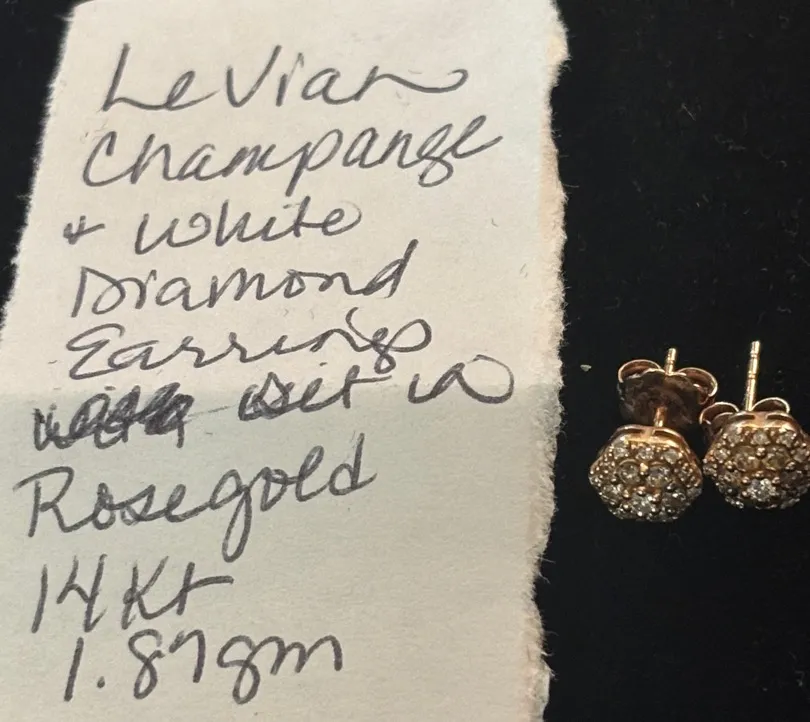 LeVian
Champange
+ White
Diamond
Earrings
set in
Rosegold
14 Kt
1.87gm